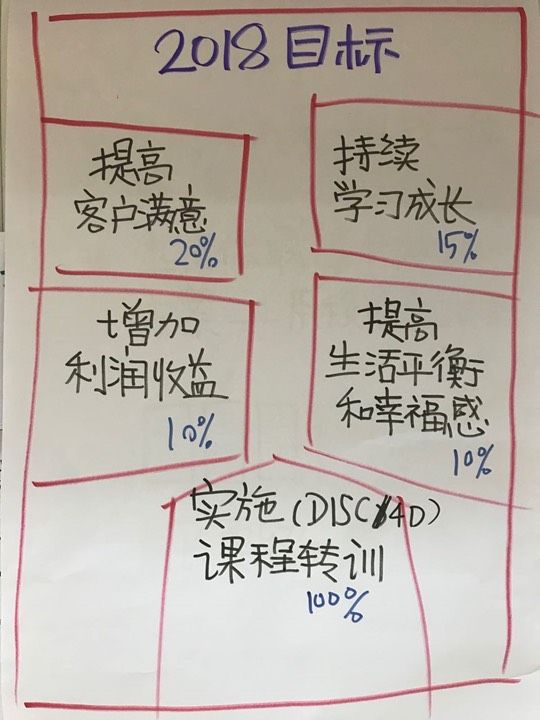 2018目标
提高
客户满意
20%
持续
学习成长
15%
增加
利润收益
10%
提高
生活平衡
和幸福感
10%
实施(DISC/4D)
课程转训
100%